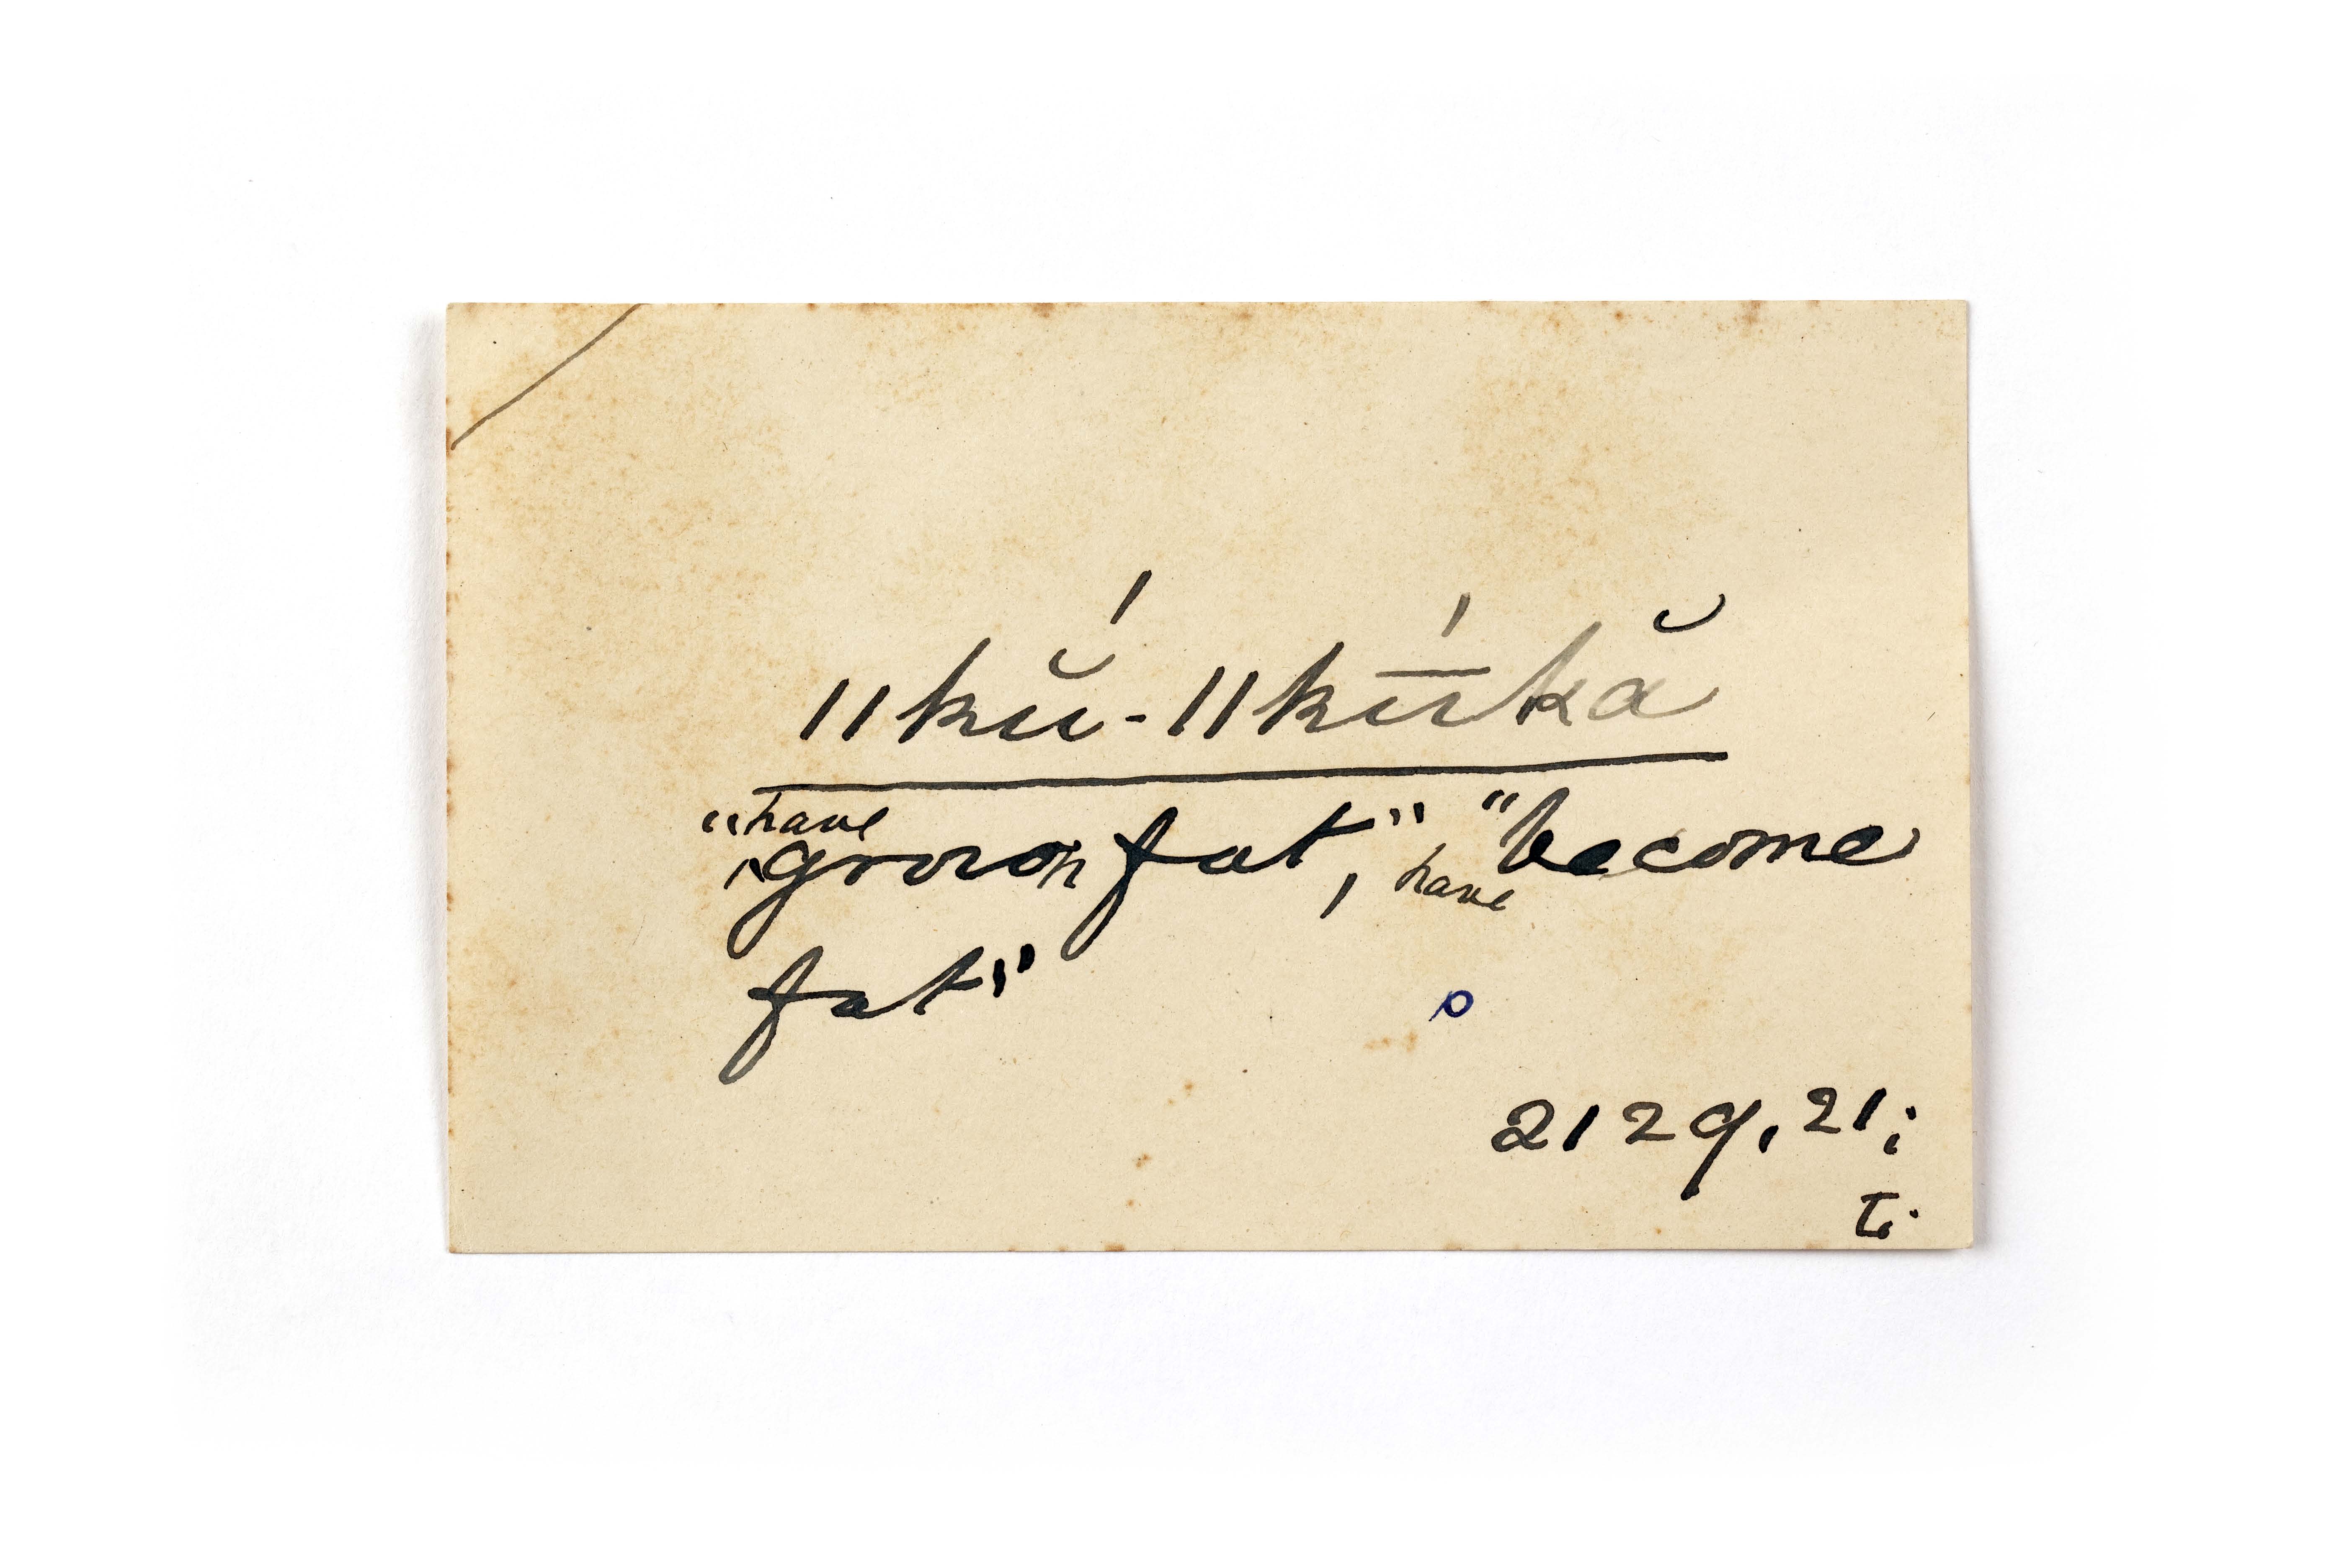 ǁkŭ́-ǁkū́kă
"have grown fat," "have become
fat"
2129, 21;